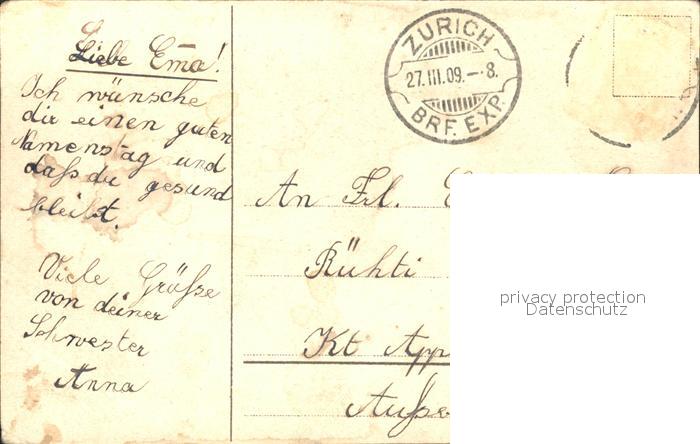 Liebe Em̄a!
Ich wünsche
dir einen guten
Namenstag und
daß du gesund
bleibst.
Viele Grüße
von deiner
Schwester
Anna
ZURICH
27.III.09.—8.
BRF. EXP.
An Frl.
Rühti
Kt App
Auße
privacy protection
Datenschutz